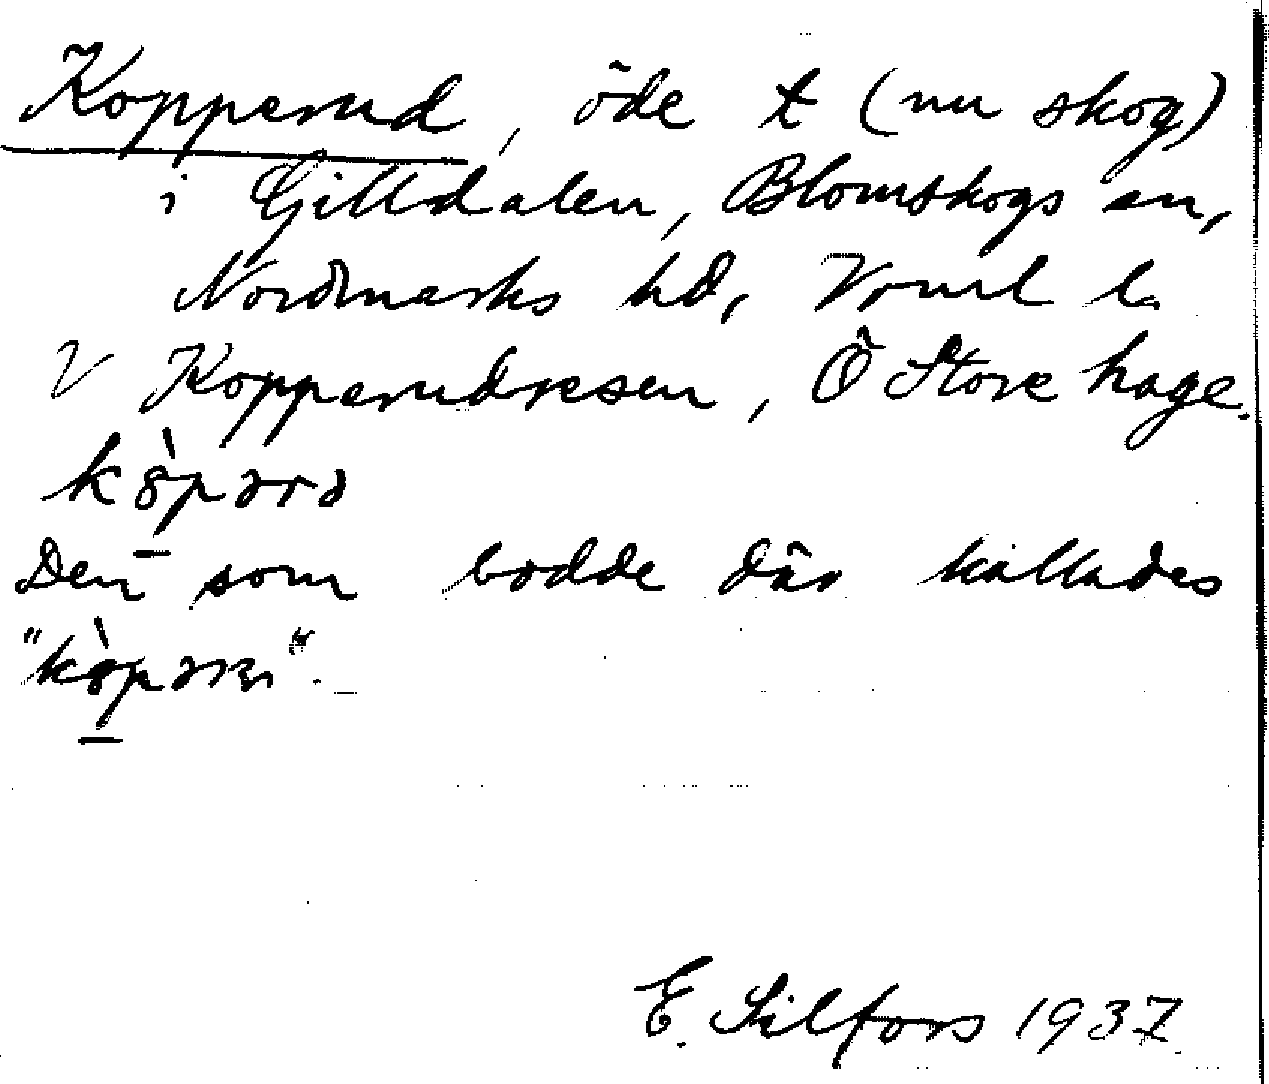 Kopperud, öde t (nu skog)
i Gilldalen, Blomskogs sn,
Nordmarks hd, Vrml l.
V Kopperudåsen, Ö Store hage.
Den som bodde där kallades
E. Silfors 1937